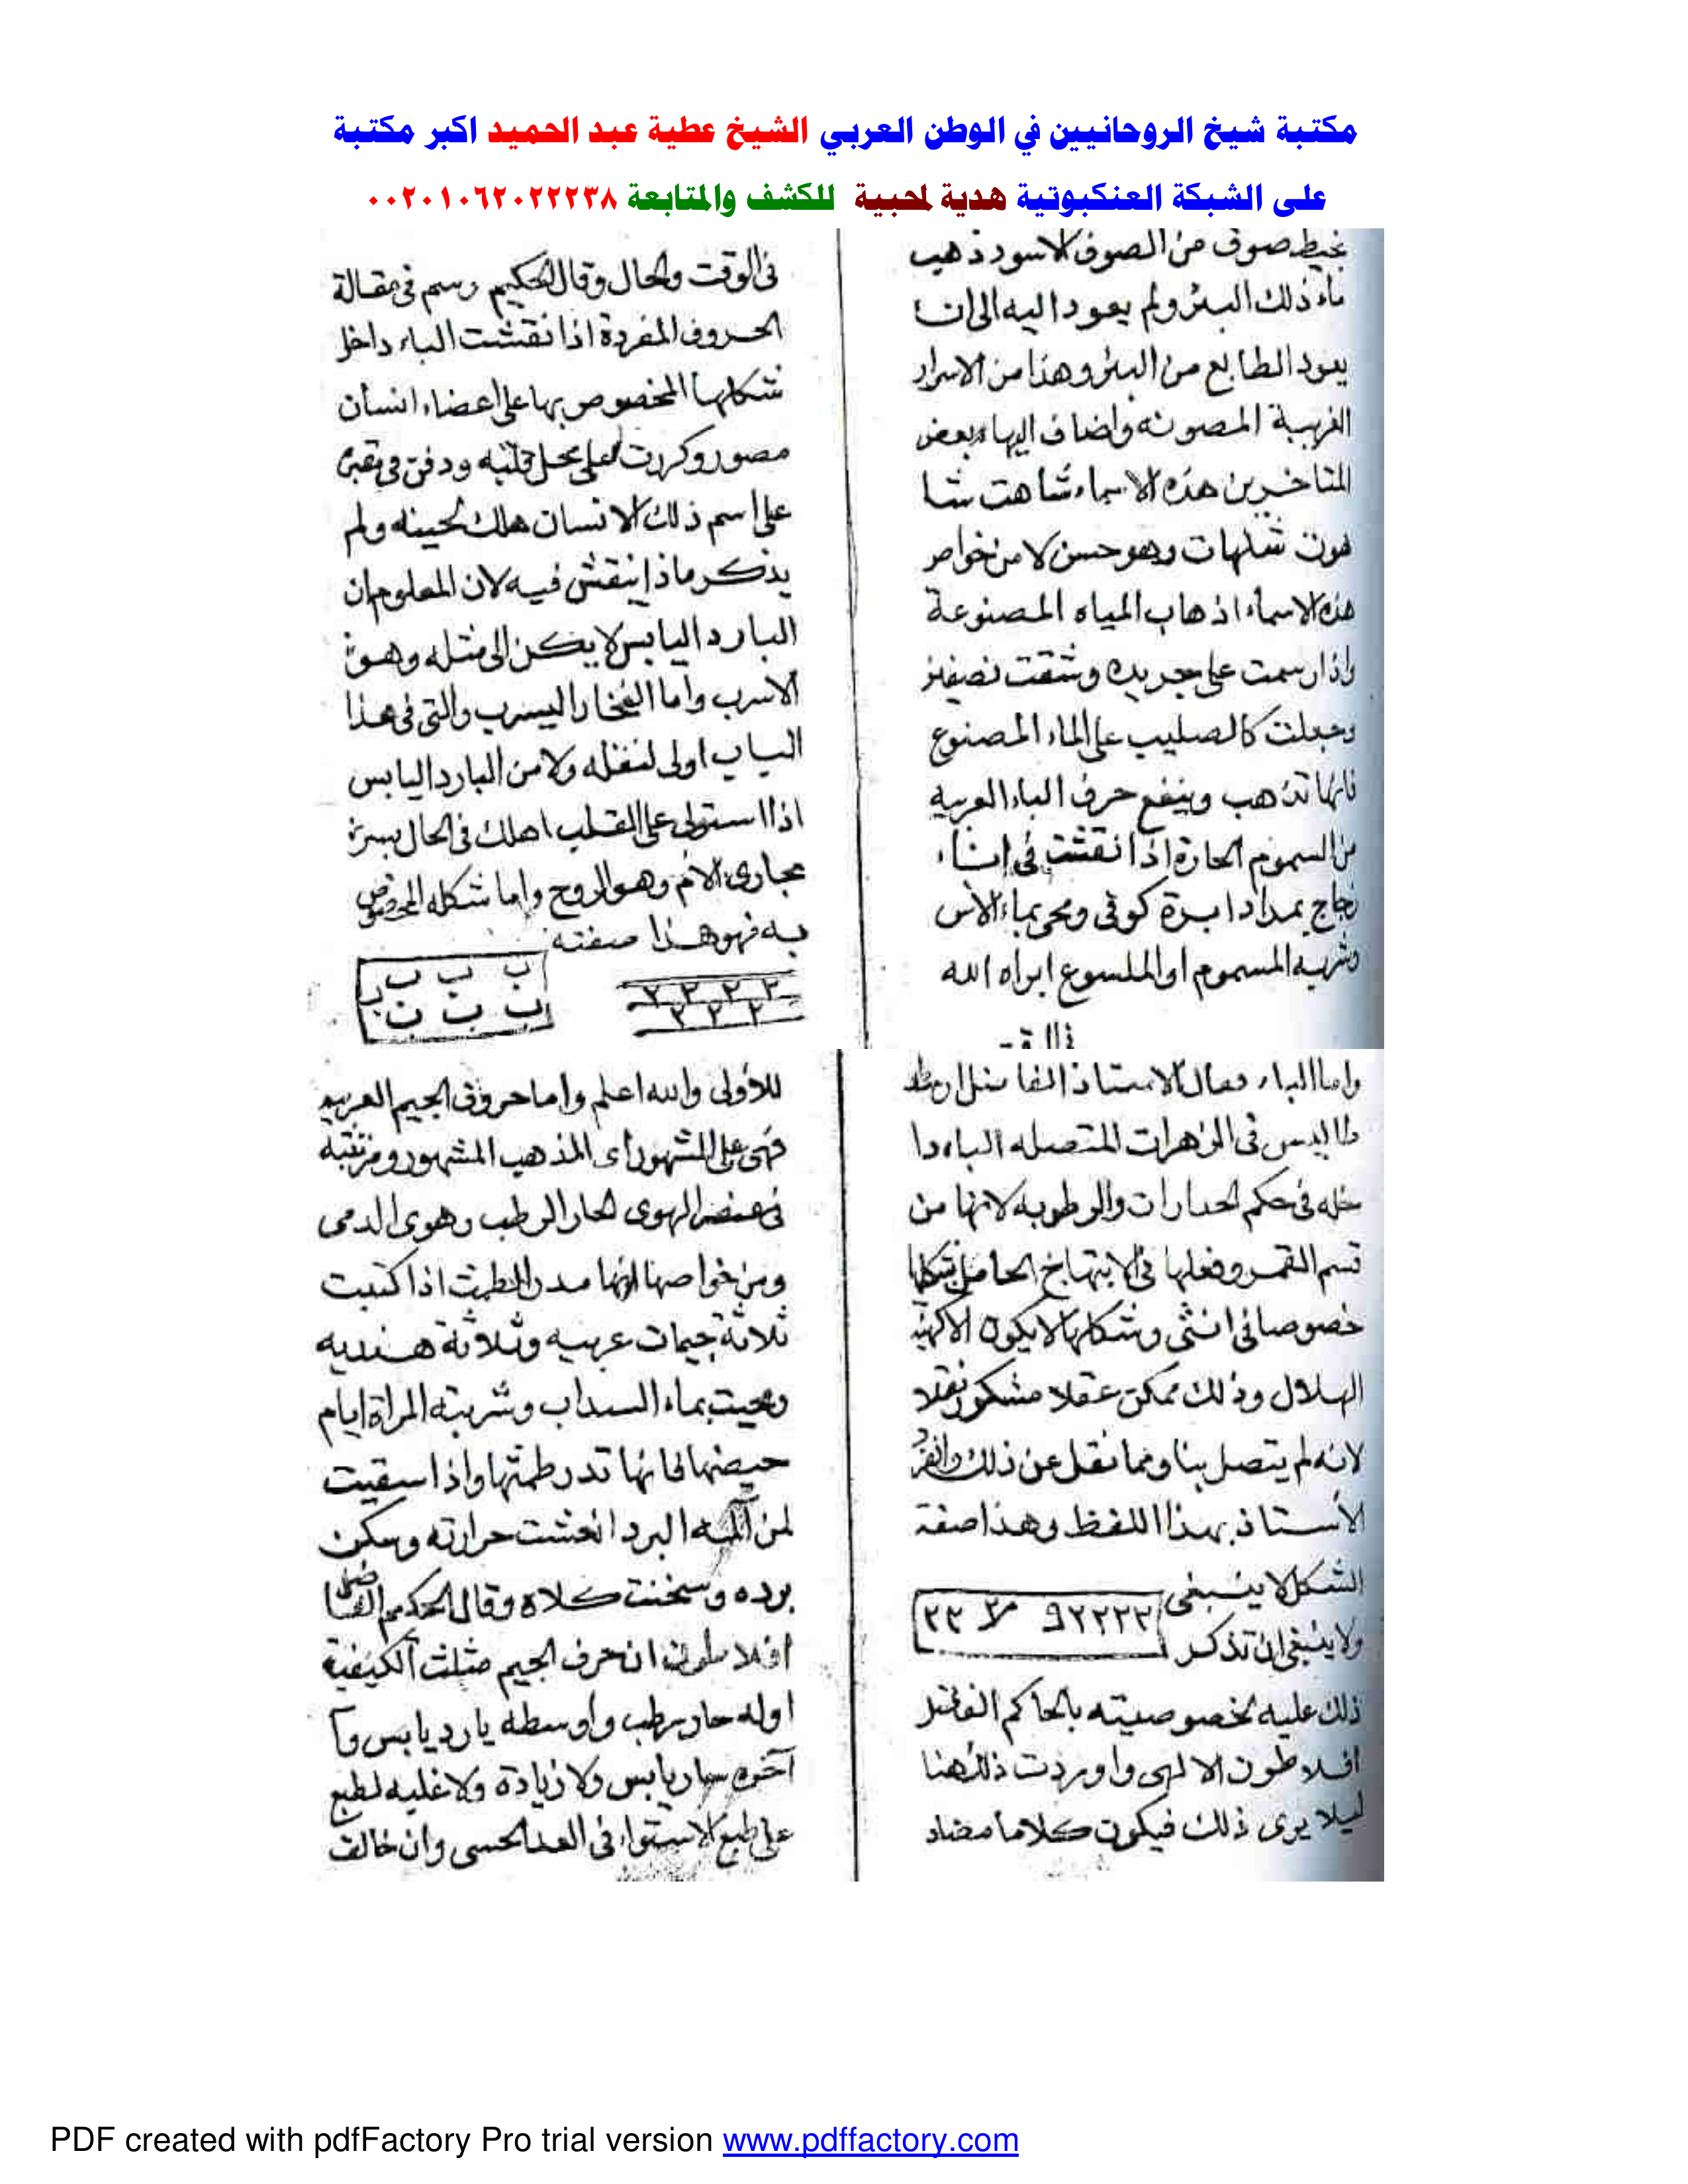 مكتبة شيخ الروحانيين في الوطن العربي الشيخ عطية عبد الحميد اكبر مكتبة
على الشبكة العنكبوتية هدية لمحبية للكشف والمتابعة ٠٠٢٠١٠٦٢٠٢٢٢٣٨
بخيط صوف من الصوف الاسود ذهب
ماء ذلك البئر ولم يعود اليه الى ان
يعود الطابع من البئر وهذا من الاسرار
الغريبة المصونه واضاف اليها بعض
المتاخرين هذه الاسماء شاهت شا
هوت شلهات وهو حسن لا من خواص
هذه الاسماء اذهاب المياه المصنوعة
واذا رسمت على جريده وشقت نصفين
وجعلت كالصليب على الماء المصنوع
فانها تذهب وينفع حرف الباء العربيه
من السموم الحارة اذا نقشت في اناء
زجاج بمداد ابرة كوفى ومحى بماء الآس
وشربه المسموم او الملسوع ابراه الله
فى الوقت
فى الوقت والحال وقال الحكيم رسم فى مقالة
الحروف المفردة اذا نقشت الباء داخل
شكلها المخصوص بها على اعضاء انسان
مصور وكررت على محل قلبه ودفن فى مقبرة
على اسم ذلك الانسان هلك لحينه ولم
يذكر ماذا ينقش فيه لان المعلوم ان
البارد اليابس لا يكن الى مثله وهو
الاسرب واما الفخار اليسرب والتى فى هذا
الباب اولى لنقله ولا من البارد اليابس
اذا استولى على القلب اهلك فى الحال بسرة
مجارى الام وهو الروح واما شكله المخصوص
به فهو هذا صفته
٢ ٢ ٢ ٢
٢ ٢ ٢
ب ب ب ب
ب ب ب
واما الباء فقال الاستاذ الفاضل ارسطا
طاليس فى الزهرات المتصله الباء دا
خله فى حكم الحرارات والرطوبه لانها من
قسم القمر وفعلها فى الابتهاج الحاصل بشكلها
خصوصا فى انثى وشكلها لا يكون الا كهيئة
الهلال وذلك ممكن عقلا مشكور نقلا
لانه لم يتصل بنا ومما نقل عن ذلك وانفرد
الأستاذ بهذا اللفظ وهذا صفة
الشكل لا ينبغى
ولا ينبغى ان تذكر
ذلك عليه لخصوصيته بالحاكم
افلاطون الالهى واوردت ذلك هنا
ليلا يرى ذلك فيكون كلاما مضاد
للأولى والله اعلم واما حروف الجيم العربيه
فهى على المشهور اى المذهب المشهور ومرتبته
فى عنصر الهوى الحار الرطب وهوى الدمى
ومن خواصها انها مدر الطمث اذا كتبت
ثلاثة جيمات عربيه وثلاثة هنديه
ومحيت بماء السداب وشربته المراة ايام
حيضها فانها تدر طمثها واذا سقيت
لمن آلمه البرد انعشت حرارته وسكن
برده وسخنت كلاه وقال الحكيم الفاضل
افلاطون ان حرف الجيم مثلث الكيفية
اوله حار رطب واوسطه بارد يابس وآ
آخره حار يابس ولا زيادة ولا غلبه لطبع
على طبع لاستواء فى العدد الحسى وان خالف
PDF created with pdfFactory Pro trial version www.pdffactory.com